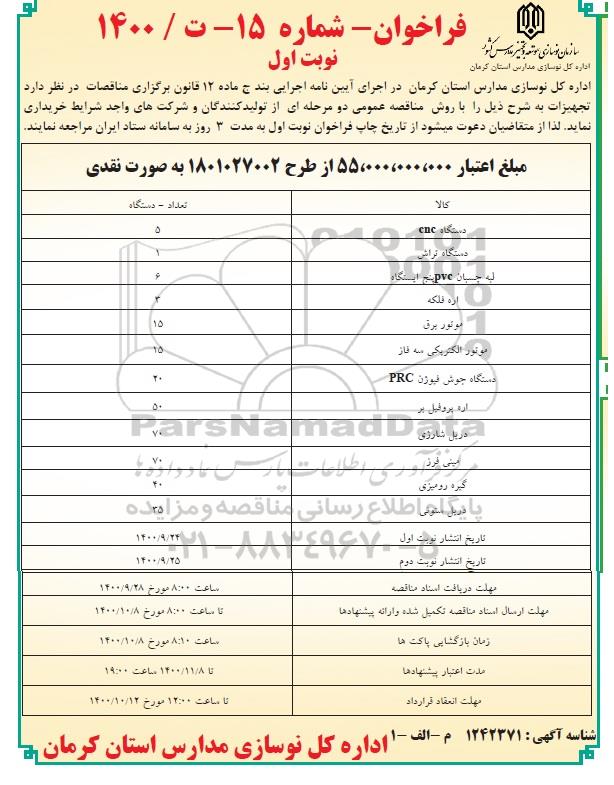 فراخوان- شماره ۱۵- ت / ۱۴۰۰
نوبت اول
سازمان نوسازی، توسعه و تجهیز مدارس کشور
اداره کل نوسازی مدارس استان کرمان
اداره کل نوسازی مدارس استان کرمان در اجرای آیین نامه اجرایی بند ج ماده ۱۲ قانون برگزاری مناقصات در نظر دارد
تجهیزات به شرح ذیل را با روش مناقصه عمومی دو مرحله ای از تولیدکنندگان و شرکت های واجد شرایط خریداری
نماید. لذا از متقاضیان دعوت میشود از تاریخ چاپ فراخوان نوبت اول به مدت ۳ روز به سامانه ستاد ایران مراجعه نمایند.
مبلغ اعتبار ۵۵،۰۰۰،۰۰۰،۰۰۰ از طرح ۱۸۰۱۰۲۷۰۰۲ به صورت نقدی
کالا تعداد - دستگاه
دستگاه cnc ۵
دستگاه تراش ۱
لبه چسبان pvc پنج ایستگاه ۶
اره فلکه ۳
موتور برق ۱۵
موتور الکتریکی سه فاز ۱۵
دستگاه جوش فیوژن PRC ۲۰
اره پروفیل بر ۵۰
دریل شارژی ۷۰
مینی فرز ۷۰
گیره رومیزی ۴۰
دریل ستونی ۳۵
تاریخ انتشار نوبت اول ۱۴۰۰/۹/۲۴
تاریخ انتشار نوبت دوم ۱۴۰۰/۹/۲۵
مهلت دریافت اسناد مناقصه ساعت ۸:۰۰ مورخ ۱۴۰۰/۹/۲۸
مهلت ارسال اسناد مناقصه تکمیل شده وارائه پیشنهادها تا ساعت ۸:۰۰ مورخ ۱۴۰۰/۱۰/۸
زمان بازگشایی پاکت ها ساعت ۸:۱۰ مورخ ۱۴۰۰/۱۰/۸
مدت اعتبار پیشنهادها تا ۱۴۰۰/۱۱/۸ ساعت ۱۹:۰۰
مهلت انعقاد قرارداد تا ساعت ۱۲:۰۰ مورخ ۱۴۰۰/۱۰/۱۲
ParsNamadData
مرکز فرآوری اطلاعات پارس نماد داده ها
پایگاه اطلاع رسانی مناقصه و مزایده
۰۲۱-۸۸۳۴۹۶۷۰-۵
شناسه آگهی : ۱۲۴۲۳۷۱ م -الف -۱
اداره کل نوسازی مدارس استان کرمان